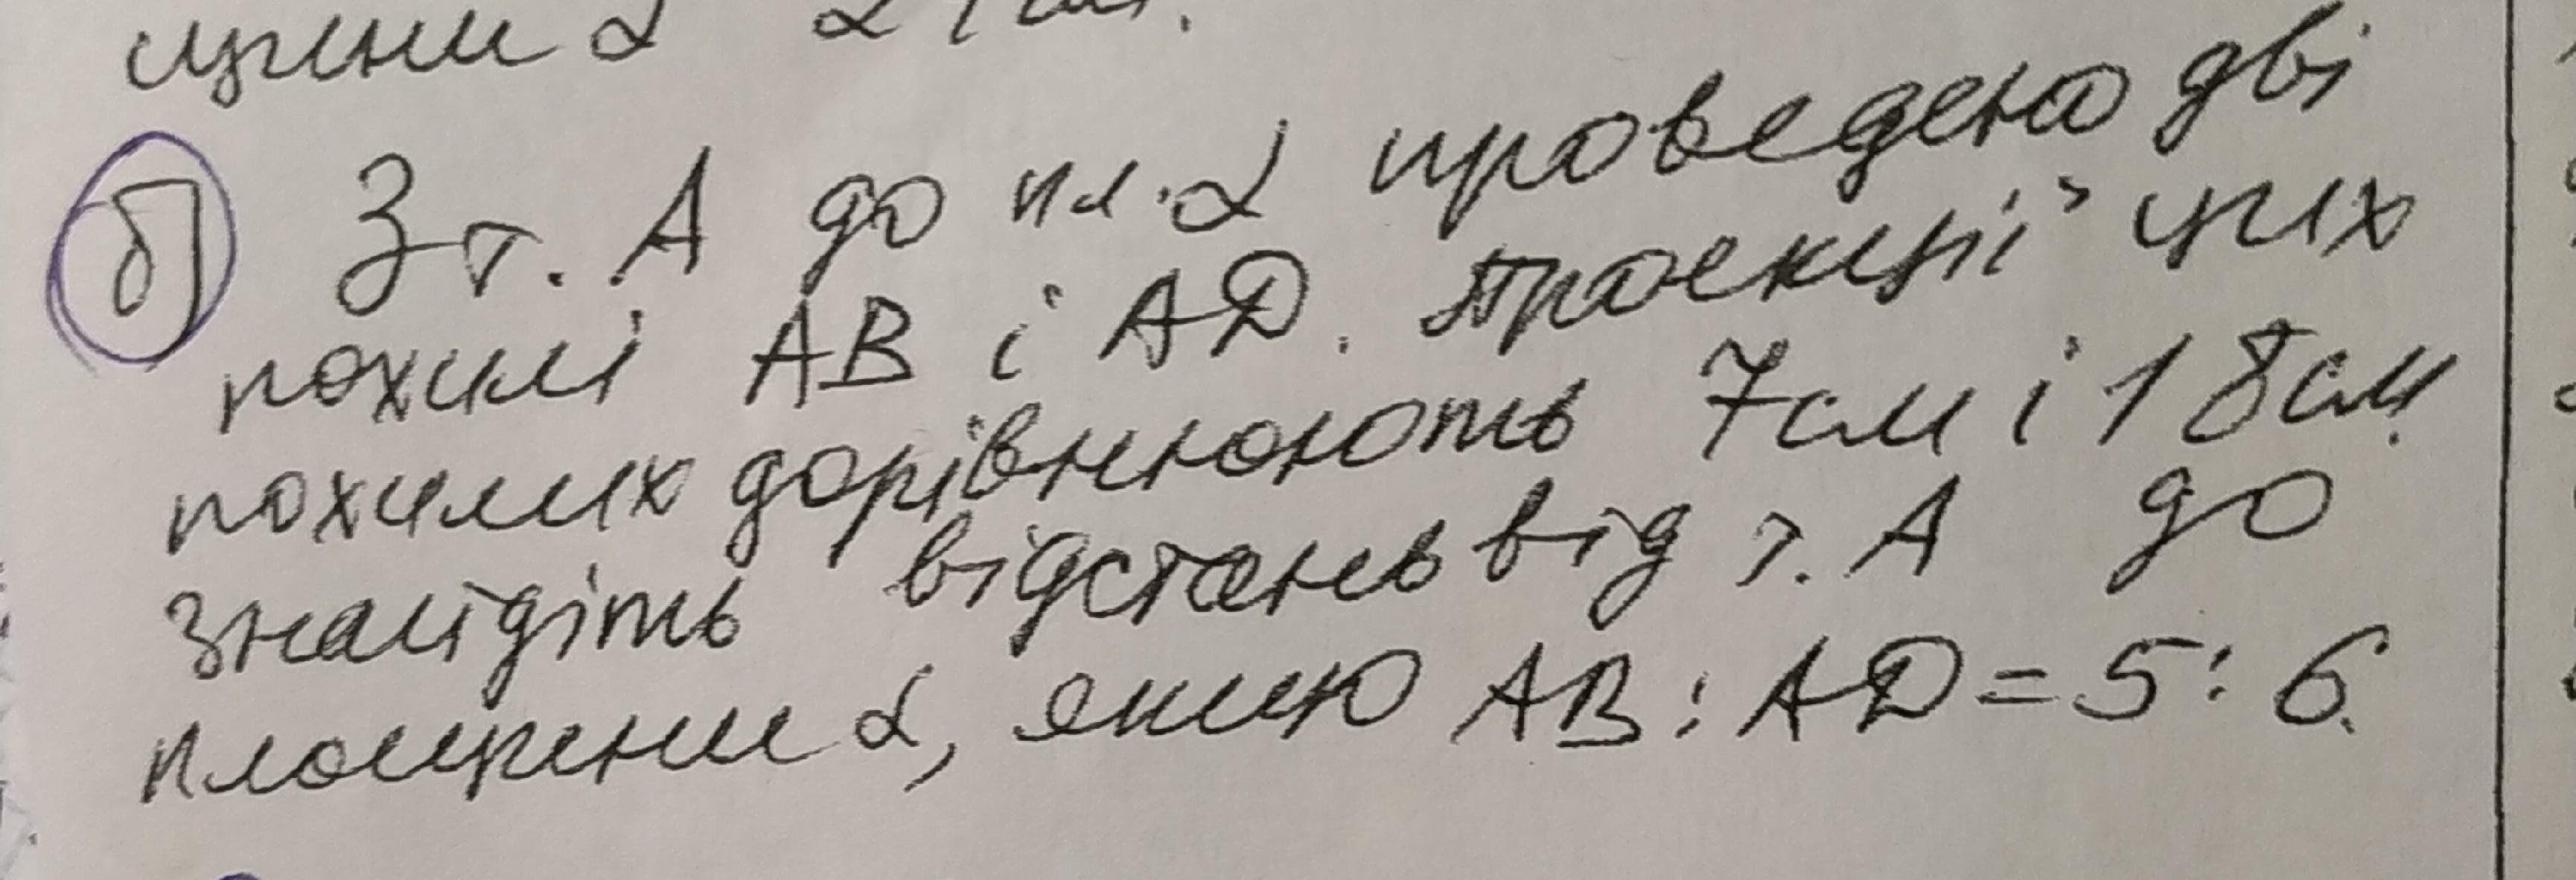 щини α
б] З т. А до пл. α проведено дві
похилі АВ і АD. Проекції цих
похилих дорівнюють 7см і 18см.
Знайдіть відстань від т. А до
площини α, якщо АВ : АD = 5 : 6.